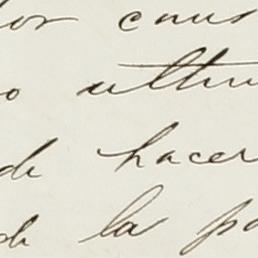 por caus
o ultim
de hacer
de la pa